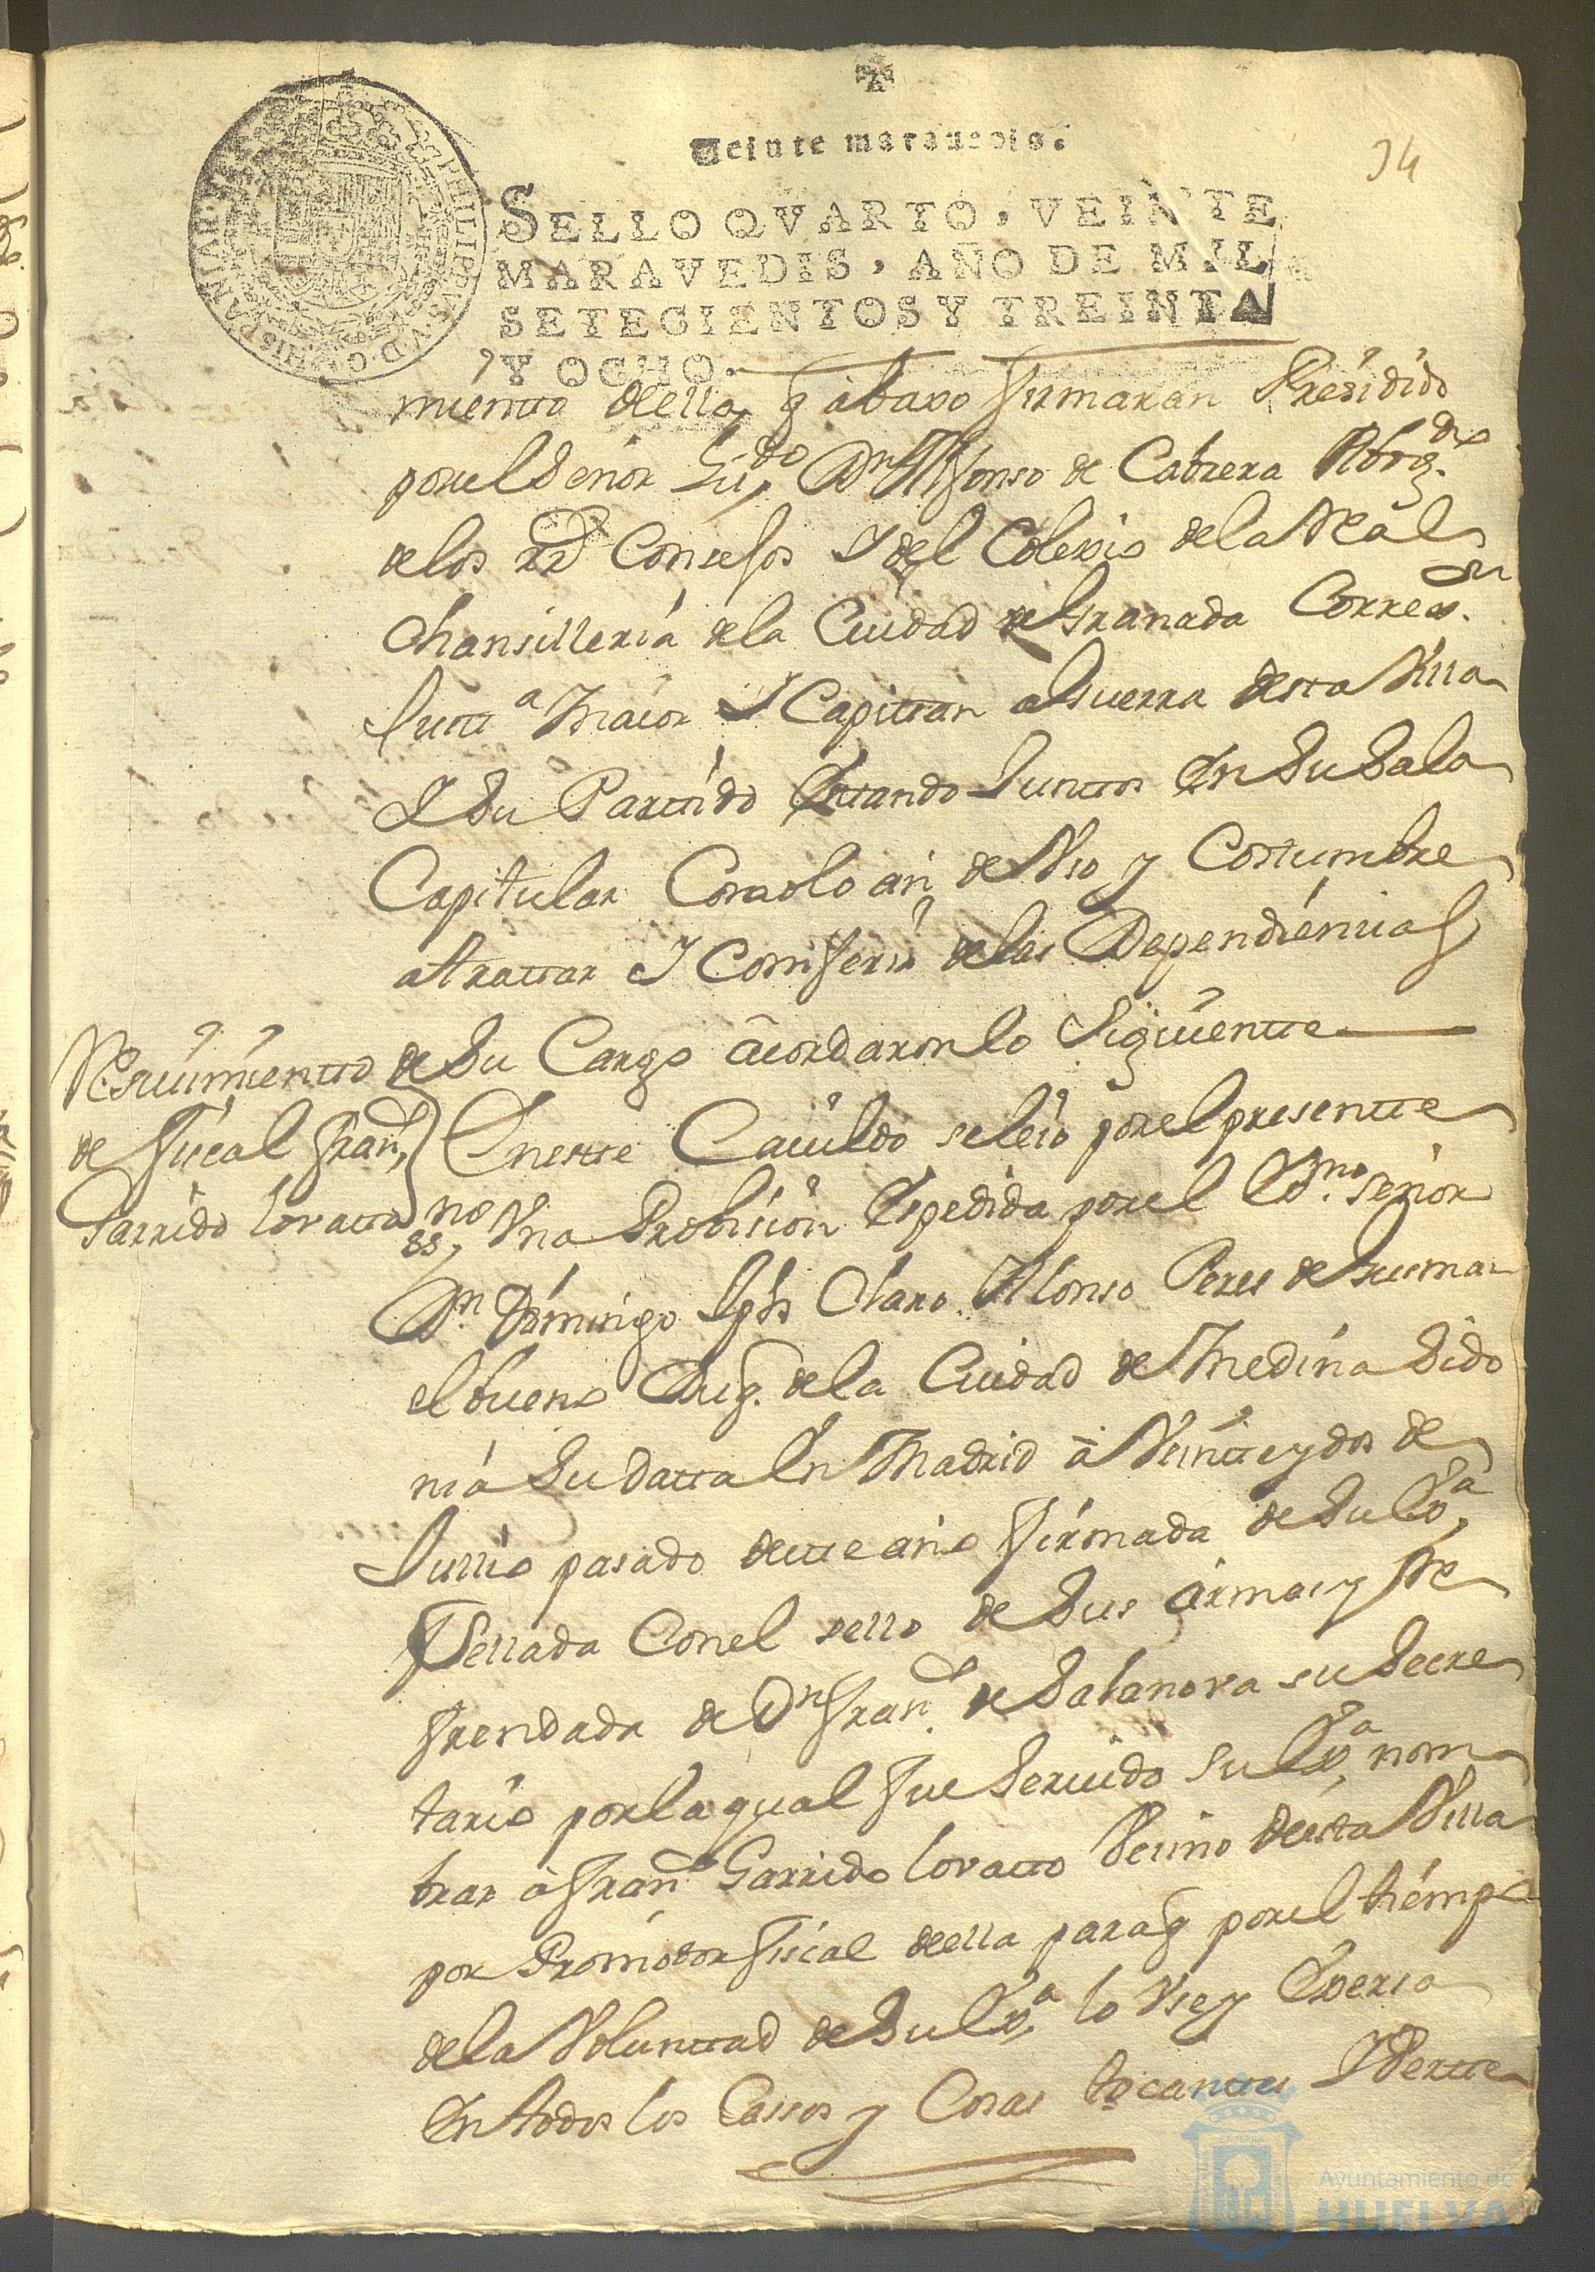 Veinte marauedis.
34
SELLO QVARTO, VEINTE
MARAVEDIS, AÑO DE MIL
SETECIENTOS Y TREINTA
Y OCHO.
PHILIPPVS V D G HISPANIAR
miento della q abaxo firmaran Presidido
por el Senor Liz.do Dn Alfonso de Cabrera Abog.do
de los RR Consejos Y del Colexio de la Real
Chansilleria de la Ciudad de Granada Correx.or
Justt.a Maior Y Capittan a Guerra desta Villa
Y Su Parttido Esttando Junttos En Su Sala
Capitular Como lo an de Vso y Costumbre
a trattar Y Conferir de las Dependiencias
de Su Cargo acordaron lo Siguientte
Resiuimientto
de fiscal Fran.co
Garrido Lovatto
En estte Cauildo se leio por el presentte
ss.no Vna Probision Espedida por el Ex.mo señor
Dn Domingo Jph Claro Alonso Peres de Gusman
el bueno Duq. de la Ciudad de Medina Sido
nia Su datta En Madrid a Veintte y dos de
Jullio pasado destte año firmada de Su Ex.a
Sellada Con el sello de Sus armas y Re
frendada de Dn Fran.co de Salanova su Secre
tario por la qual fue Seruido Su Ex.a nom
brar a Fran.co Garrido Lovatto Vecino de esta Villa
por Promotor fiscal de ella para q por el tiempo
de la Voluntad de Su Ex.a lo Vse y Exersa
En todos los Cassos y Cosas tocanttes Y Pertte
Ayuntamiento de
HUELVA